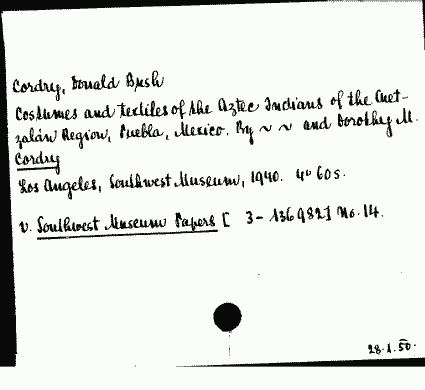 Cordry, Donald Bush
Costumes and textiles of the Aztec Indians of the Cuet-
zalán Region, Puebla, Mexico. By ~ ~ and Dorothy M.
Cordry
Los Angeles, Southwest Museum, 1940. 4° 60 s.
v. Southwest Museum Papers [ 3-136982] No. 14.
28.1.50.